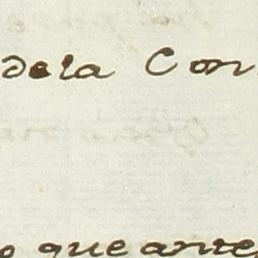 dela Con
o que ante